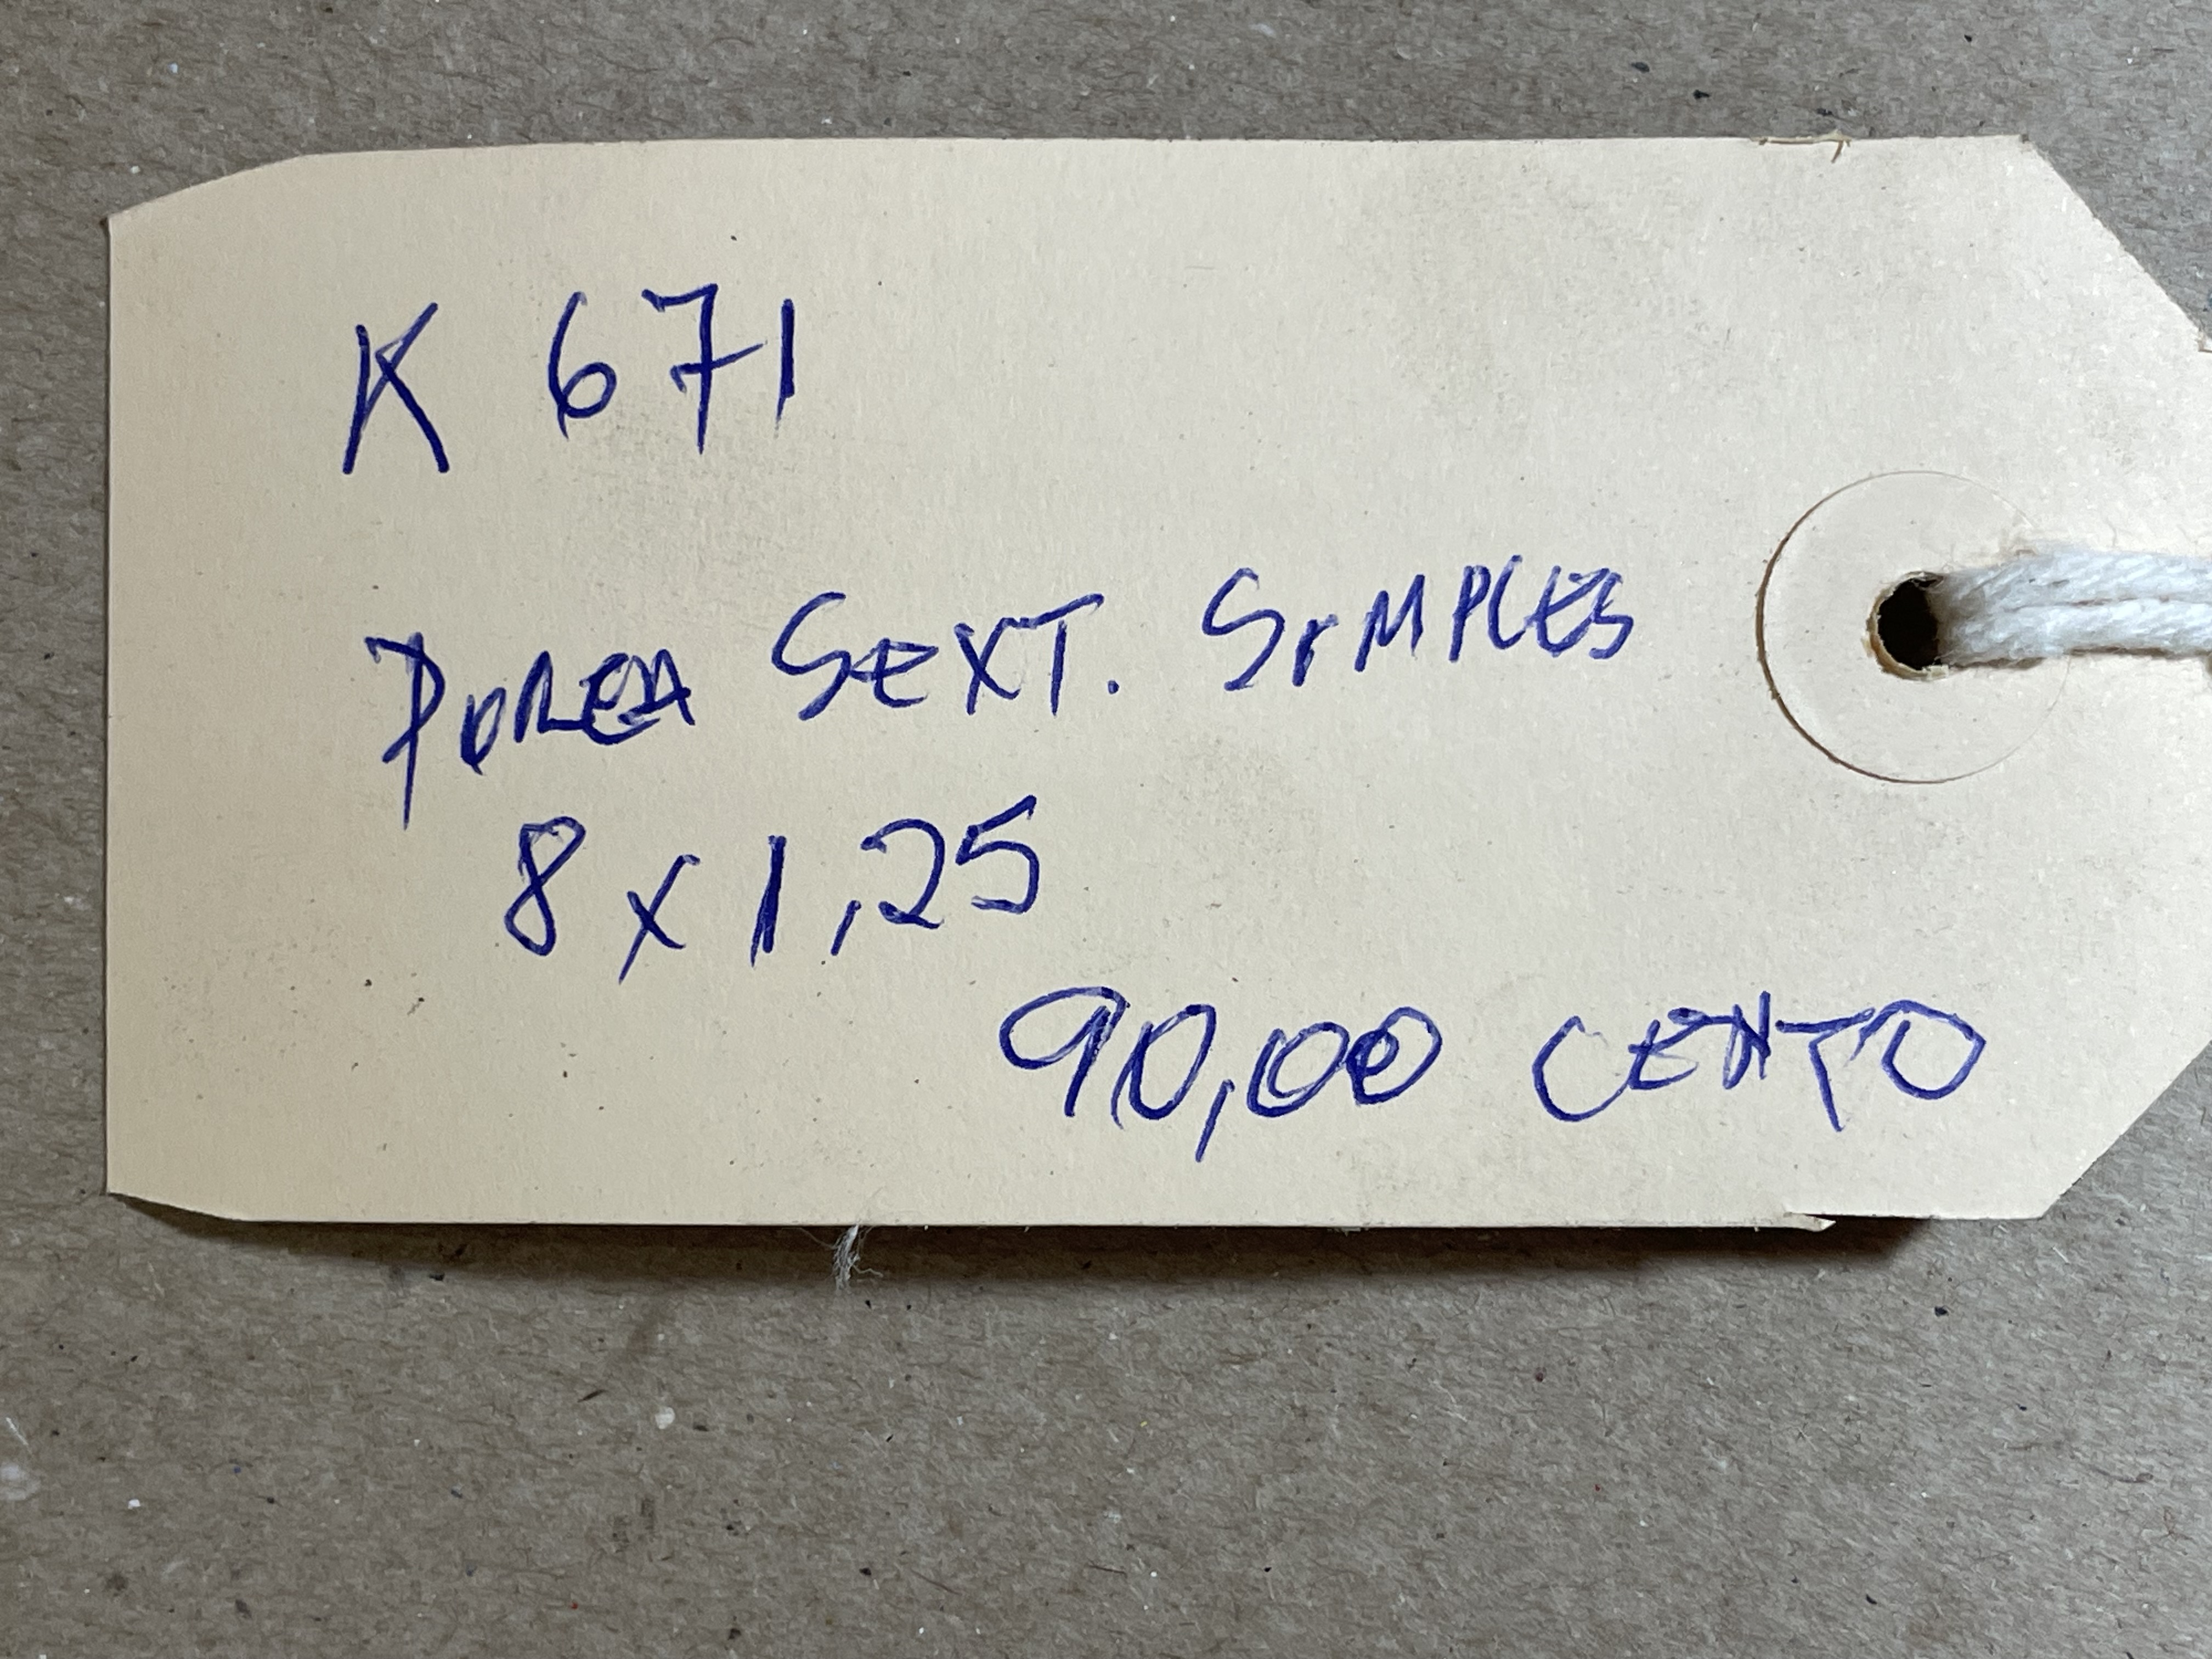 K 671
Porca SEXT. SIMPLES
8 X 1,25
90,00 CENTO